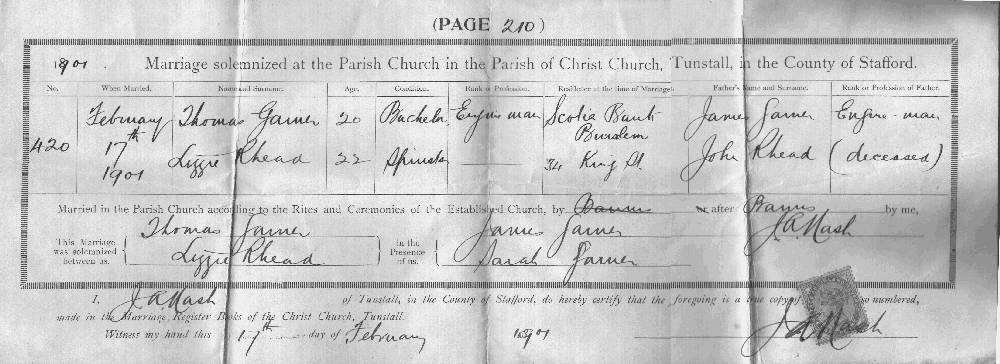 (PAGE 210)
1901. Marriage solemnized at the Parish Church in the Parish of Christ Church, Tunstall, in the County of Stafford.
No. When Married. Name and Surname. Age. Condition. Rank or Profession. Residence at the time of Marriage. Father's Name and Surname. Rank or Profession of Father.
420 February 17th 1901 Thomas Garner 20 Bachelor Engine man Scotia Bank Burslem James Garner Engine-man
Lizzie Rhead 22 Spinster 34 King St. John Rhead (deceased)
Married in the Parish Church according to the Rites and Ceremonies of the Established Church, by Banns or after Banns by me,
This Marriage was solemnized between us. Thomas Garner in the Presence of us. James Garner J A Nash
Lizzie Rhead Sarah Garner
I, J A Nash of Tunstall, in the County of Stafford, do hereby certify that the foregoing is a true copy of so numbered,
made in the Marriage Register Books of the Christ Church, Tunstall.
Witness my hand this 17th day of February 1901 J A Nash